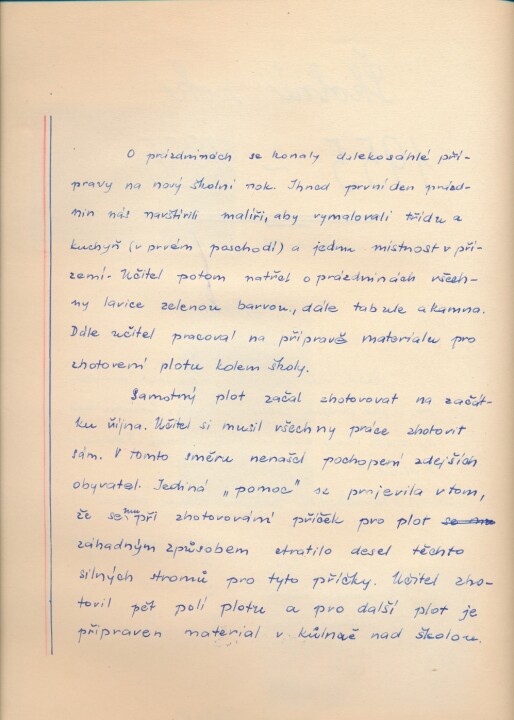 O prázdninách se konaly dalekosáhlé pří-
pravy na nový školní rok. Ihned první den prázd-
nin nás navštívili malíři, aby vymalovali třídu a
kuchyň (v prvém poschodí) a jednu místnost v pří-
zemí. Učitel potom natřel o prázdninách všech-
ny lavice zelenou barvou, dále tabule a kamna.
Dále učitel pracoval na přípravě materialu pro
zhotovení plotu kolem školy.
Samotný plot začal zhotovovat na začát-
ku října. Učitel si musil všechny práce zhotovit
sám. V tomto směru nenašel pochopení zdejších
obyvatel. Jediná „pomoc" se projevila v tom,
že se mu při zhotovování příček pro plot
záhadným způsobem ztratilo deset těchto
silných stromů pro tyto příčky. Učitel zho-
tovil pět polí plotu a pro další plot je
připraven material v kůlně nad školou.